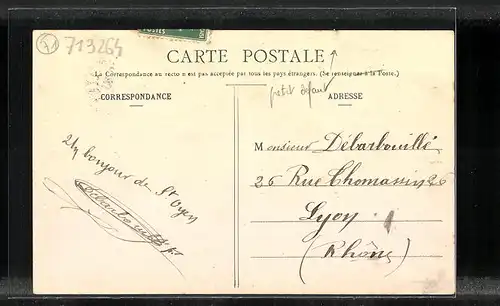 71
713264
POSTES
CARTE POSTALE
La Correspondance au recto n'est pas acceptée par tous les pays étrangers. (Se renseigner à la Poste.)
petit enfant
CORRESPONDANCE
ADRESSE
Un bonjour de St Oyen
Monsieur Débarbouillé
26 Rue Thomassin 26
Lyon
(Rhône)